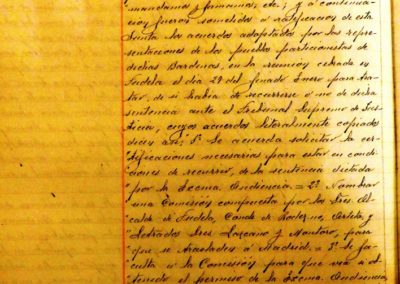 mandamos y firmamos, etc.; y á continua-
ción fueron sometidos á ratificacion de esta
Junta los acuerdos adoptados por las repre-
sentaciones de los pueblos participantes de
dichas Bardenas, en la reunión celebrada en
Tudela el dia 29 del finado Enero para tra-
tar, de si había de recurrirse o no de dicha
sentencia ante el Tribunal Supremo de Jus-
ticia, cuyos acuerdos literalmente copiados
dicen así; 1º Se acuerda solicitar la cer-
tificaciones necesarias para estar en condi-
ciones de recurrir, de la sentencia dictada
por la Excma. Audiencia. = 2º Nombrar
una Comisión compuesta por los Sres. Al-
calde de Tudela, Conde de Rodezno, y
Letrados Sres. Lazcano y Montoro, para
que se trasladen á Madrid. = 3º Se fa-
culta á la Comisión para que vea si
el permiso de la Excma. Audiencia,